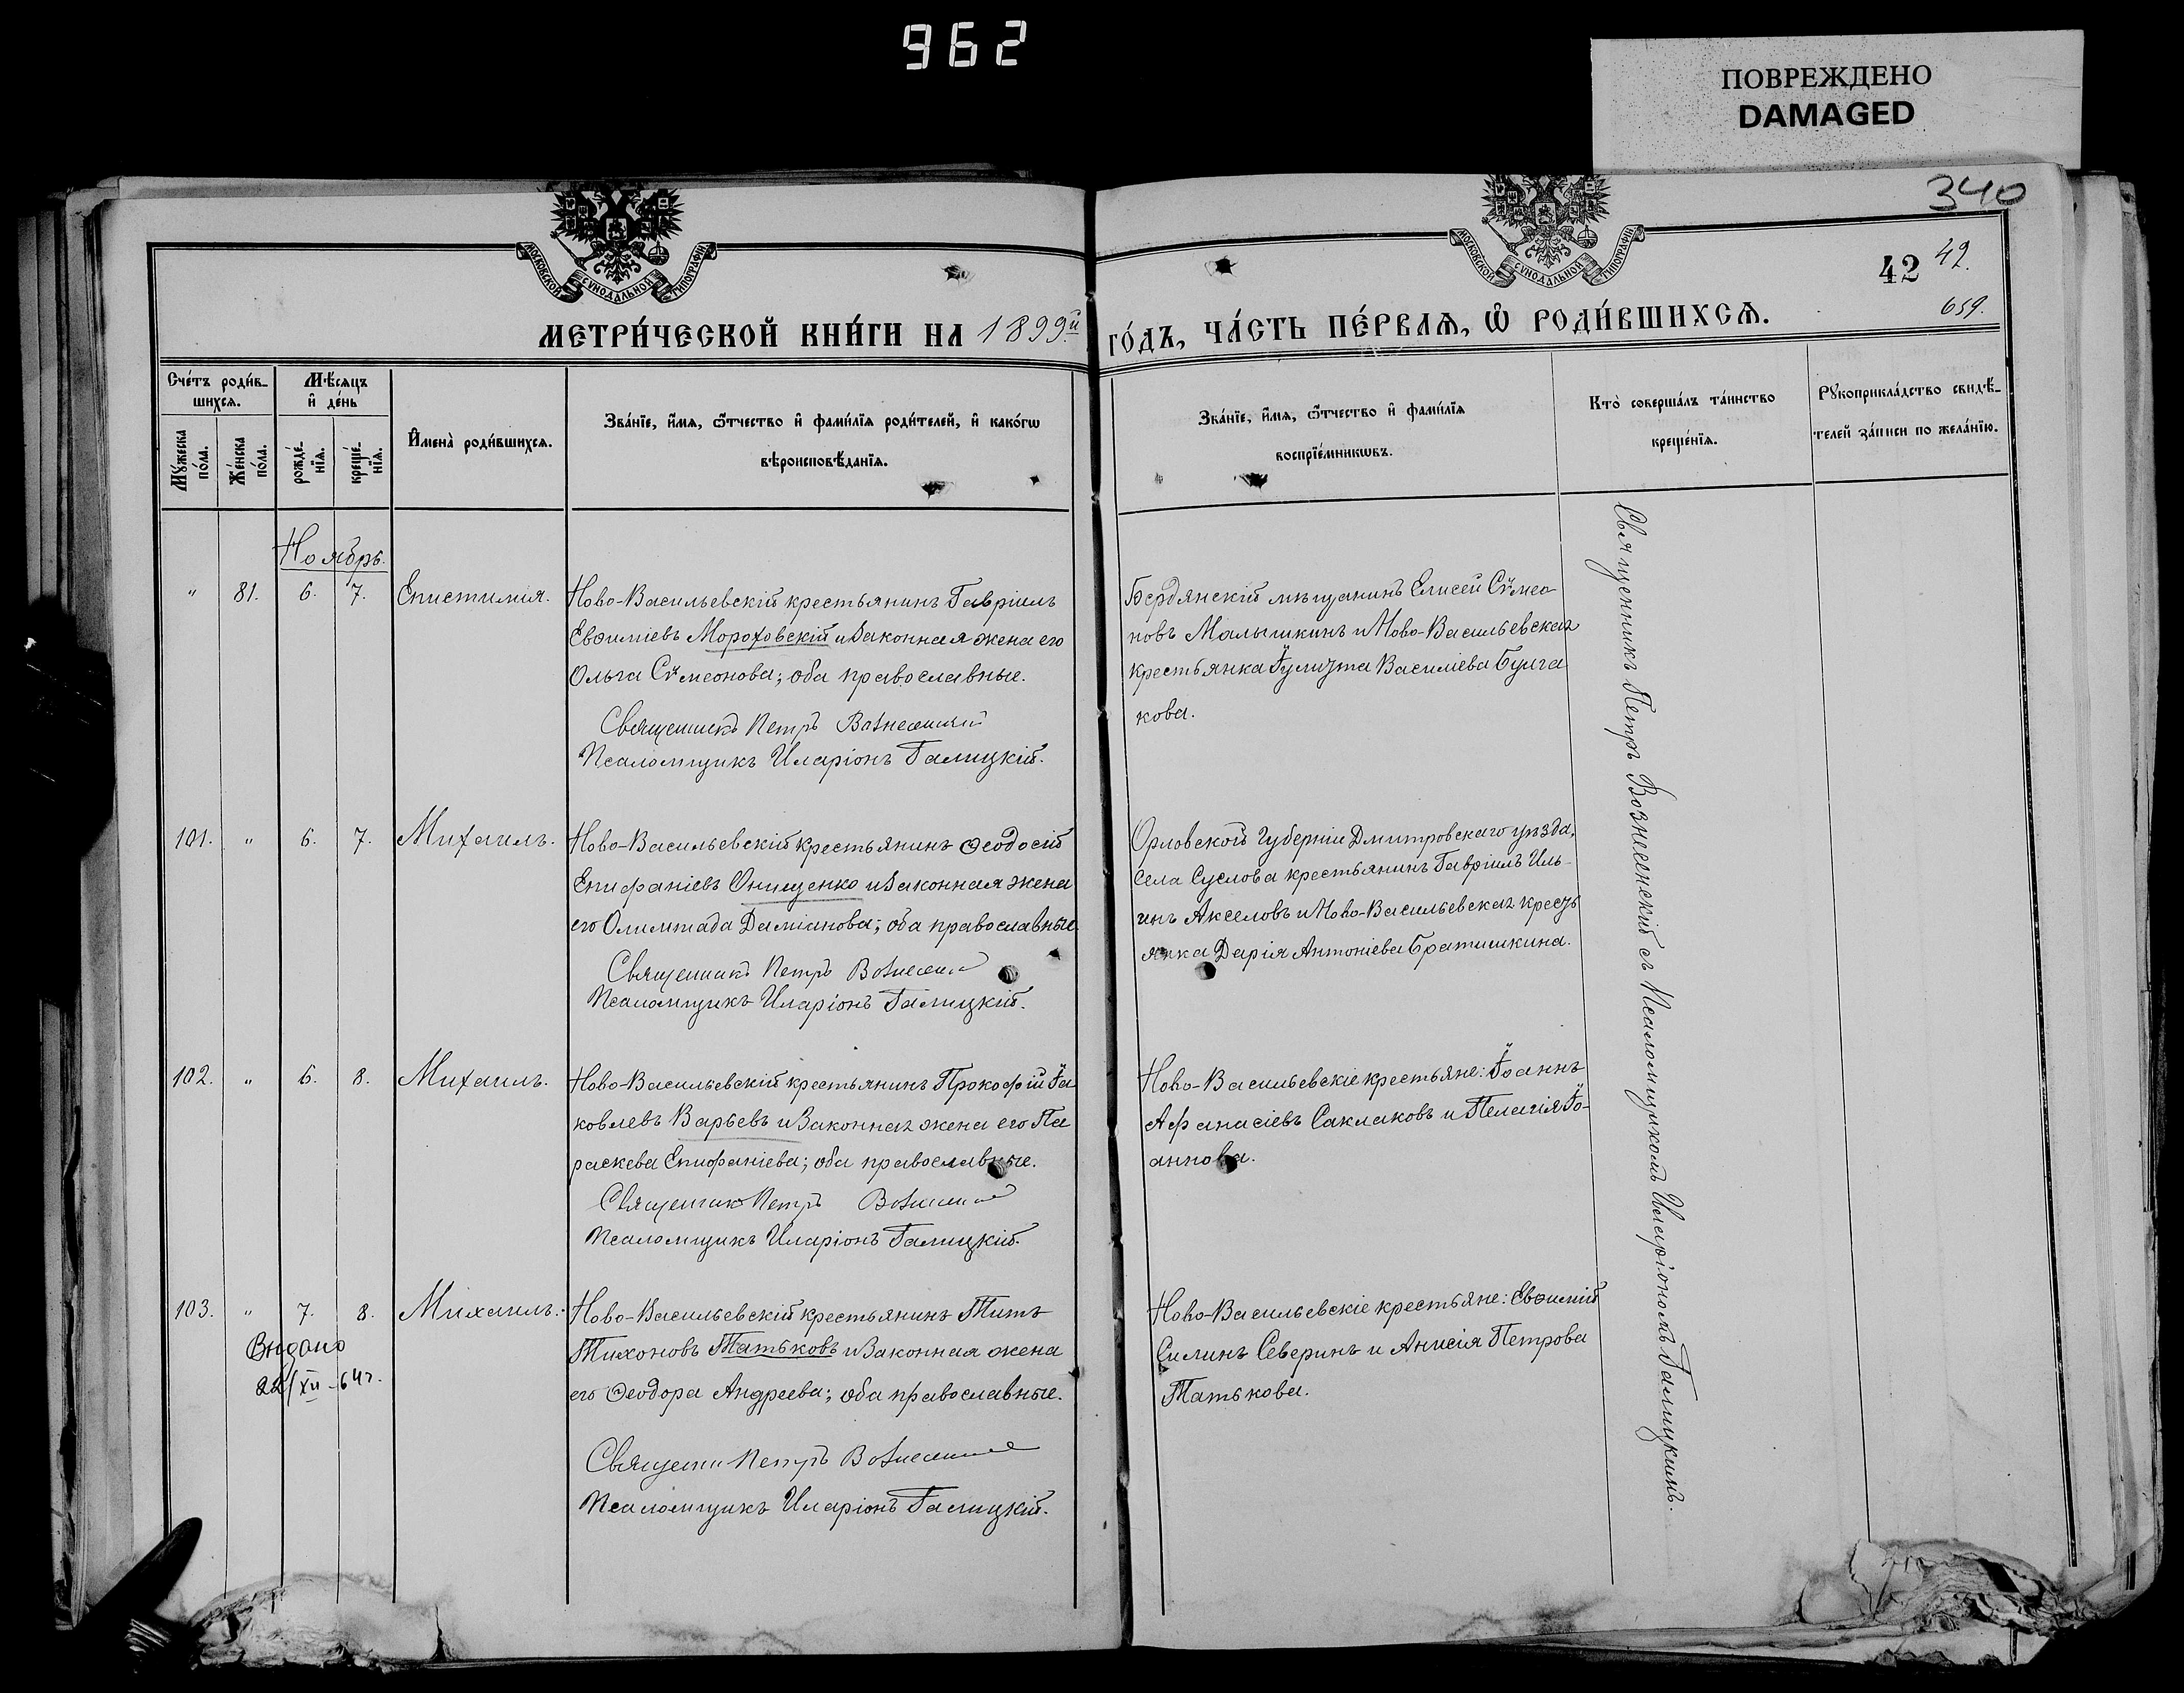 962
ПОВРЕЖДЕНО
DAMAGED
340
МОСКОВСКОЙ СѴНОДАЛЬНОЙ ТИПОГРАФІИ
МОСКОВСКОЙ СѴНОДАЛЬНОЙ ТИПОГРАФІИ
42 42.
659.
МЕТРИ́ЧЕСКОЙ КНИ́ГИ НА 1899й
ГО́ДЪ, ЧА́СТЬ ПЕ́РВАЯ, Ѿ РОДИ́ВШИХСЯ.
Сче́тъ роди́в-
шихся.
Мѣ́сяцъ
и҆ де́нь
Мꙋ́жеска по́ла.
Же́нска по́ла.
рожде́-нїя.
креще́-нїя.
И҆мена̀ роди́вшихся.
Зва́нїе, и҆́мя, ѻ҆́тчество и҆ фами́лїя роди́телей, и҆ како́гѡ
вѣроисповѣ́данїя.
Зва́нїе, и҆́мя, ѻ҆́тчество и҆ фами́лїя
воспрїе́мникѡвъ.
Кто̀ соверша́лъ та́инство
креще́нїя.
Рꙋкоприкла́дство свидѣ́-
телей за́писи по жела́нїю.
Ноябрь.
" 81. 6. 7. Епистимія.
Ново-Васильевскій крестьянинъ Гавріилъ
Евѳиміевъ Мороховскій и законная жена его
Ольга Сѵмеонова; оба православные.
Священникъ Петръ Вознесенскій
Псаломщикъ Иларіонъ Галицкій.
Бердянскій мѣщанинъ Елисей Сѵмео-
новъ Малышкинъ и Ново-Васильевская
крестьянка Іулитта Василіева Булга
кова.
101. " 6. 7. Михаилъ.
Ново-Васильевскій крестьянинъ Ѳеодосій
Епифаніевъ Онищенко и законная жена
его Олимпіада Даміанова; оба православные.
Священникъ Петръ Вознесенскій
Псаломщикъ Иларіонъ Галицкій.
Орловской губерніи Дмитровскаго уѣзда,
села Суслова крестьянинъ Гавріилъ Иль-
инъ Акселовъ и Ново-Васильевская кресть
янка Дарія Антоніева Братишкина.
102. " 6. 8. Михаилъ.
Ново-Васильевскій крестьянинъ Прокофій Іа
ковлевъ Варьевъ и законная жена его Па
раскева Епифаніева; оба православные.
Священникъ Петръ Вознесенскій
Псаломщикъ Иларіонъ Галицкій.
Ново-Васильевскіе крестьяне: Іоаннъ
Афанасіевъ Саклаковъ и Пелагія Іо-
аннова.
103. " 7. 8. Михаилъ.
Выдано
22/XII-64г.
Ново-Васильевскій крестьянинъ Титъ
Тихоновъ Татьковъ и законная жена
его Ѳеодора Андреева; оба православные.
Священникъ Петръ Вознесенскій
Псаломщикъ Иларіонъ Галицкій.
Ново-Васильевскіе крестьяне: Евѳимій
Силинъ Северинъ и Анисія Петрова
Татькова.
Священникъ Петръ Вознесенскій съ Псаломщикомъ Иларіономъ Галицкимъ.